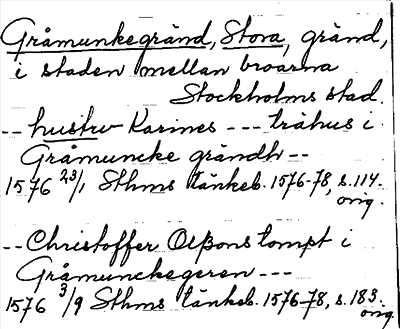 Gråmunkegränd, Stora, gränd,
i staden mellan broarna
Stockholms stad.
-- hustrv Karines --- trähus i
Gråmuncke grändh --
1576 23/1 Sthms tänkeb. 1576-78, s. 114.
orig.
-- Christoffer Olßons tompt i
Gråmunckegeren ---
1576 3/9 Sthms tänkeb. 1576-78, s. 183.
orig.